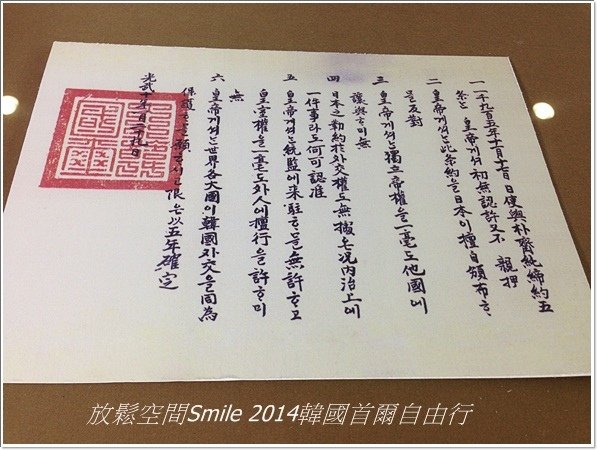 一 一千九百五年十一月十七日日使與朴齊純締約五
条는 皇帝게셔 初無認許又不 親押
二 皇帝게셔는 此条約을 日本이 擅自頒布ᄒᆞ
믈 反對
三 皇帝게셔는 獨立帝權을 一毫도 他國에
讓與ᄒᆞ미 無
四 日本之勒約於外交權도 無據온 况内治上에
一件事라도 何可認准
五 皇帝게셔는 統監에 來駐ᄒᆞ믈 無許ᄒᆞ고
皇室權을 一毫도 外人에 擅行을 許ᄒᆞ미
無
六 皇帝게셔는 世界各大國이 韓國外交을 同爲
保護ᄒᆞ믈 願ᄒᆞ시고 限은 以五年確定
光武十年一月二十九日
放鬆空間Smile 2014韓國首爾自由行